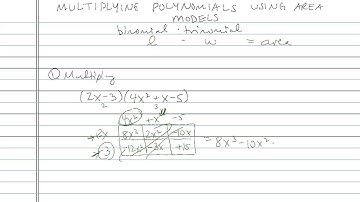 MULTIPLYINE POLYNOMIALS USING AREA
MODELS
binomial · trinomial
l · w = area
① Multiply
(2x-3)(4x²+x-5)
2 3
4x² +x -5
2x 8x³ 2x² -10x = 8x³-10x²-
-3 -12x² -3x +15